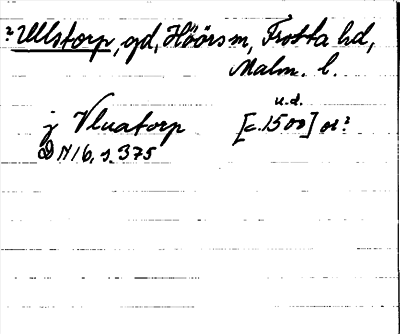 ? Ullstorp, gd, Höörs sn, Frosta hd,
Malm. l.
u.d.
j Vluatorp [c. 1500] or?
D N 16, s. 375